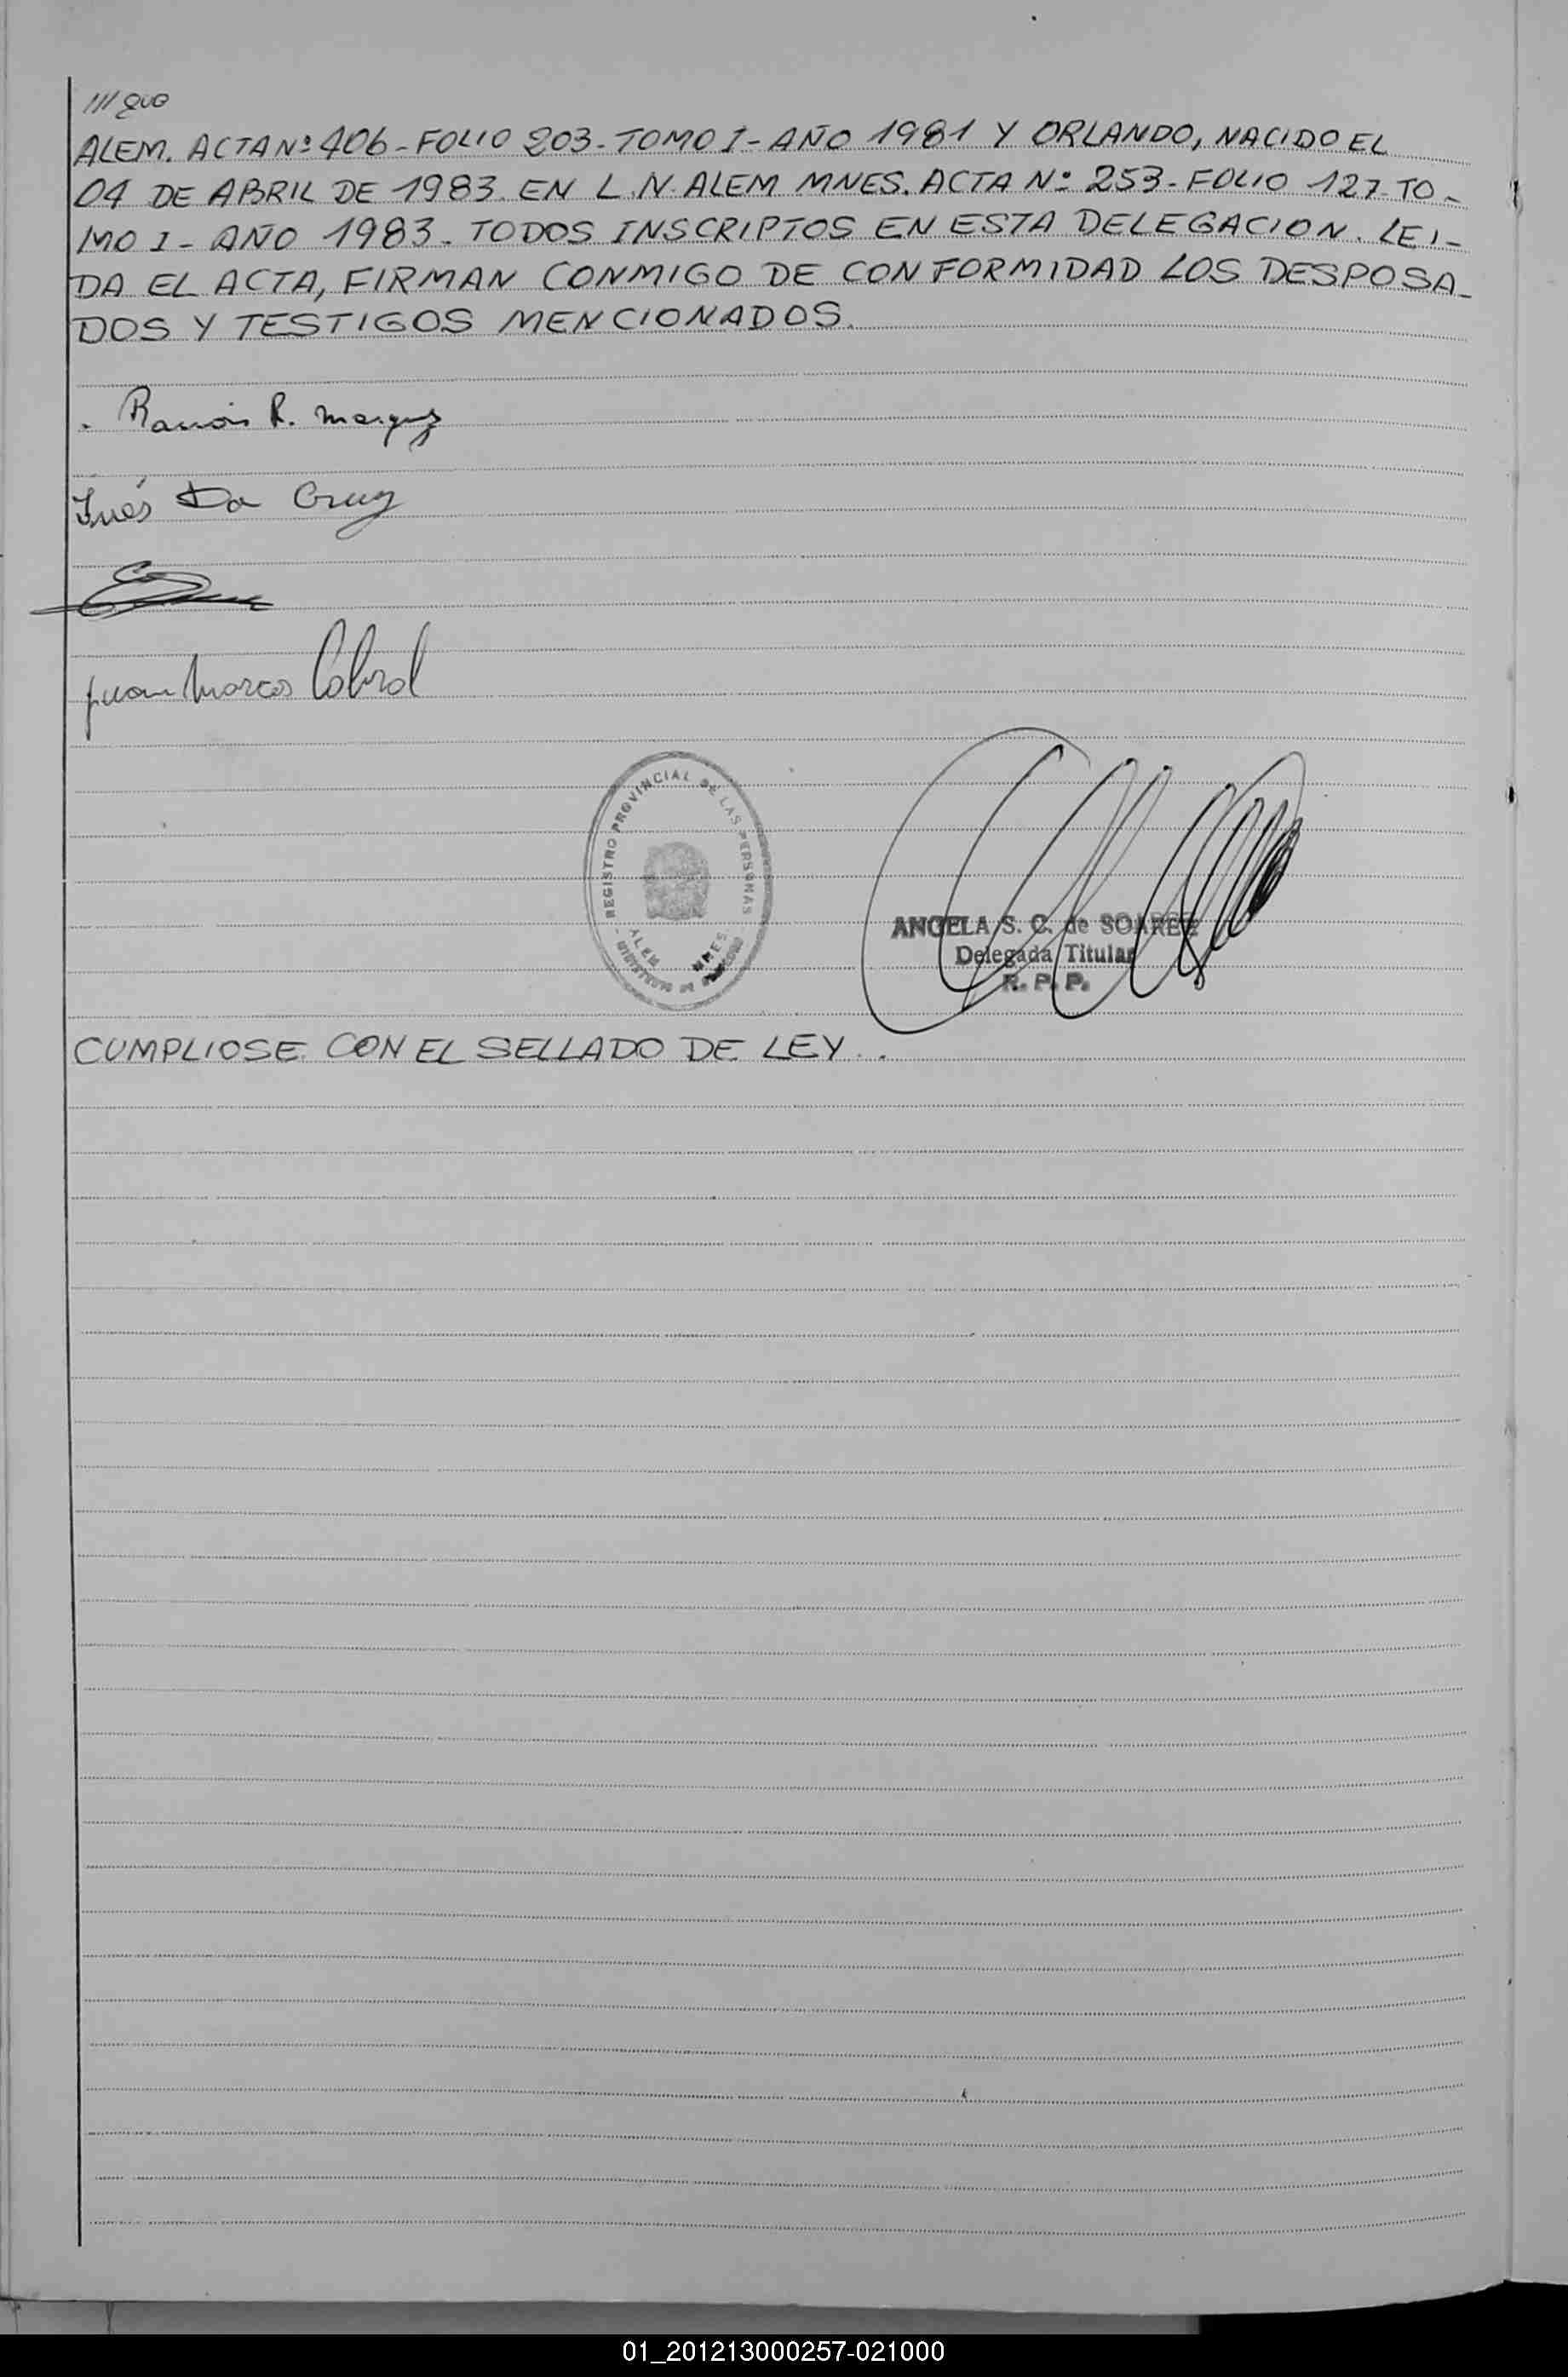 /// gue
ALEM. ACTA Nº 406 - FOLIO 203 - TOMO I - AÑO 1981 Y ORLANDO, NACIDO EL
04 DE ABRIL DE 1983. EN L.N. ALEM MNES. ACTA Nº 253 - FOLIO 127 - TO-
MO I - AÑO 1983. TODOS INSCRIPTOS EN ESTA DELEGACION. LEI-
DA EL ACTA, FIRMAN CONMIGO DE CONFORMIDAD LOS DESPOSA-
DOS Y TESTIGOS MENCIONADOS.
Ramón R. Marquez
Inés Da Cruz
Juan Marcos Cabral
REGISTRO PROVINCIAL DE LAS PERSONAS
ALEM MNES
ANGELA S. C. de SOAREZ
Delegada Titular
R. P. P.
CUMPLIOSE CON EL SELLADO DE LEY..
01_201213000257-021000